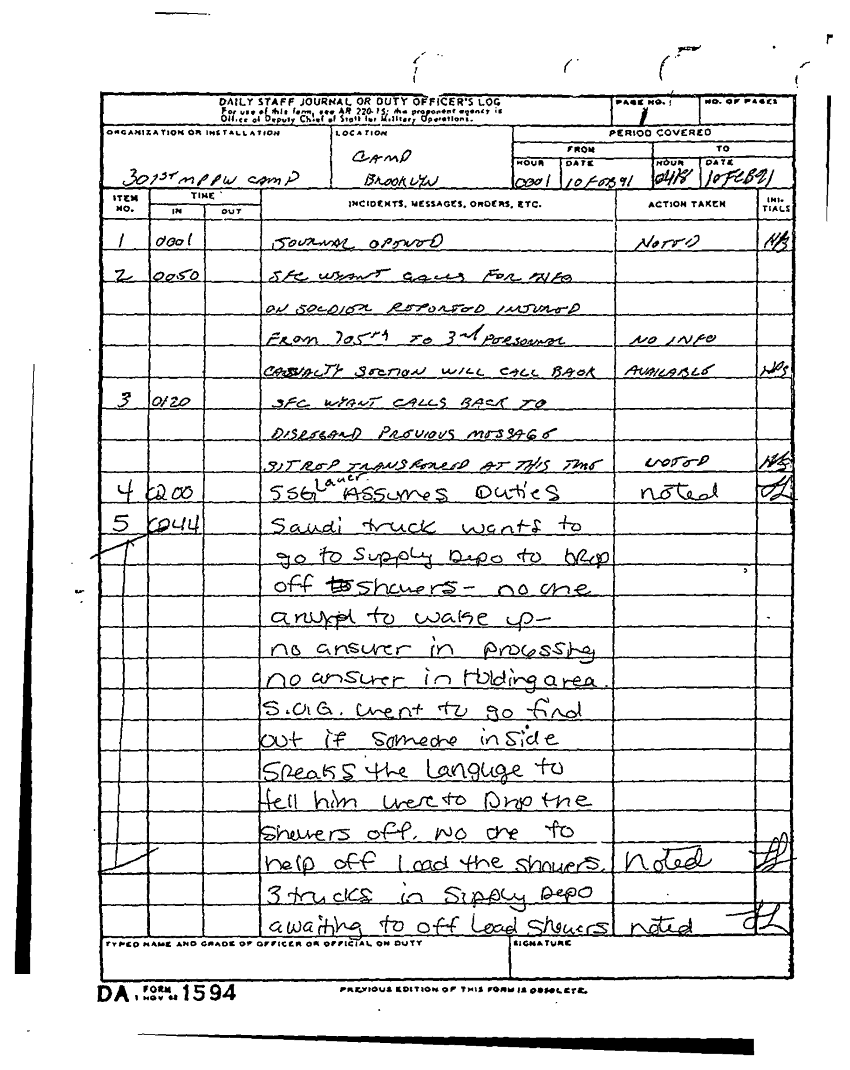 DAILY STAFF JOURNAL OR DUTY OFFICER'S LOG
For use of this form, see AR 220-15; the proponent agency is
Office of Deputy Chief of Staff for Military Operations.
PAGE NO.
1
NO. OF PAGES
ORGANIZATION OR INSTALLATION
301ST MP PW CAMP
LOCATION
CAMP
BROOKLYN
PERIOD COVERED
FROM
TO
HOUR
DATE
HOUR
DATE
0001
10 FEB 91
10 FEB 91
ITEM NO.
TIME
IN
OUT
INCIDENTS, MESSAGES, ORDERS, ETC.
ACTION TAKEN
INI-TIALS
1 0001 JOURNAL OPENED NOTED
2 0050 SFC WYANT CALLS FOR INFO
ON SOLDIER REPORTED INJURED
FROM 705th TO 3rd PERSONNEL NO INFO
CASUALTY SECTION WILL CALL BACK AVAILABLE
3 0120 SFC WYANT CALLS BACK TO
DISREGARD PREVIOUS MESSAGE
SITREP TRANSFERRED AT THIS TIME NOTED
4 0200 SSG Lauer ASSUMES Duties noted JL
5 0244 Saudi truck wants to
go to Supply Depo to Drop
off showers - no one
to wake up -
no answer in Processing
no answer in Holding area.
S.O.G. went to go find
out if someone inside
Speaks the Languge to
tell him were to Drop the
Showers off. No one to
help off Load the showers. Noted JL
3 trucks in Supply Depo
awaiting to off Load showers noted JL
TYPED NAME AND GRADE OF OFFICER OR OFFICIAL ON DUTY
SIGNATURE
DA FORM 1 NOV 62 1594
PREVIOUS EDITION OF THIS FORM IS OBSOLETE.